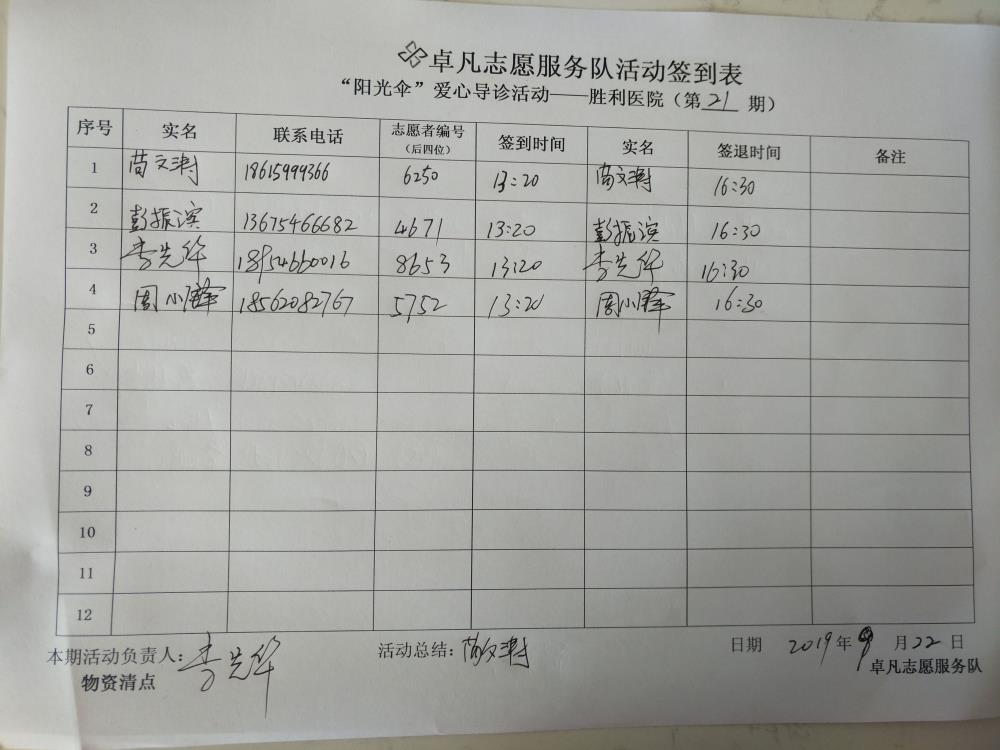 卓凡志愿服务队活动签到表
“阳光伞”爱心导诊活动——胜利医院（第 21 期）
序号 实名 联系电话 志愿者编号（后四位） 签到时间 实名 签退时间 备注
1 苘文澍 18615999366 6250 13:20 苘文澍 16:30
2 彭振滨 13675466682 4671 13:20 彭振滨 16:30
3 李先华 18954660016 8653 13:20 李先华 16:30
4 周小峰 18562082767 5752 13:20 周小峰 16:30
5
6
7
8
9
10
11
12
本期活动负责人：李先华 活动总结：苘文澍 日期 2019年9月22日
物资清点 卓凡志愿服务队